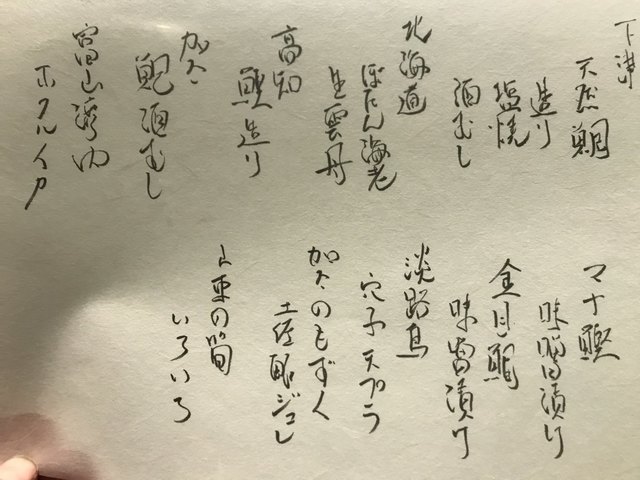 下津
天然鯛
造り
塩焼
酒むし
北海道
ぼたん海老
生雲丹
高知
鰹造り
加太
鮑酒むし
富山湾内
ホタルイカ
マナ鰹
味噌漬け
金目鯛
味噌漬け
淡路島
穴子天プラ
加太のもずく
土佐酢ジュレ
の筍
いろいろ